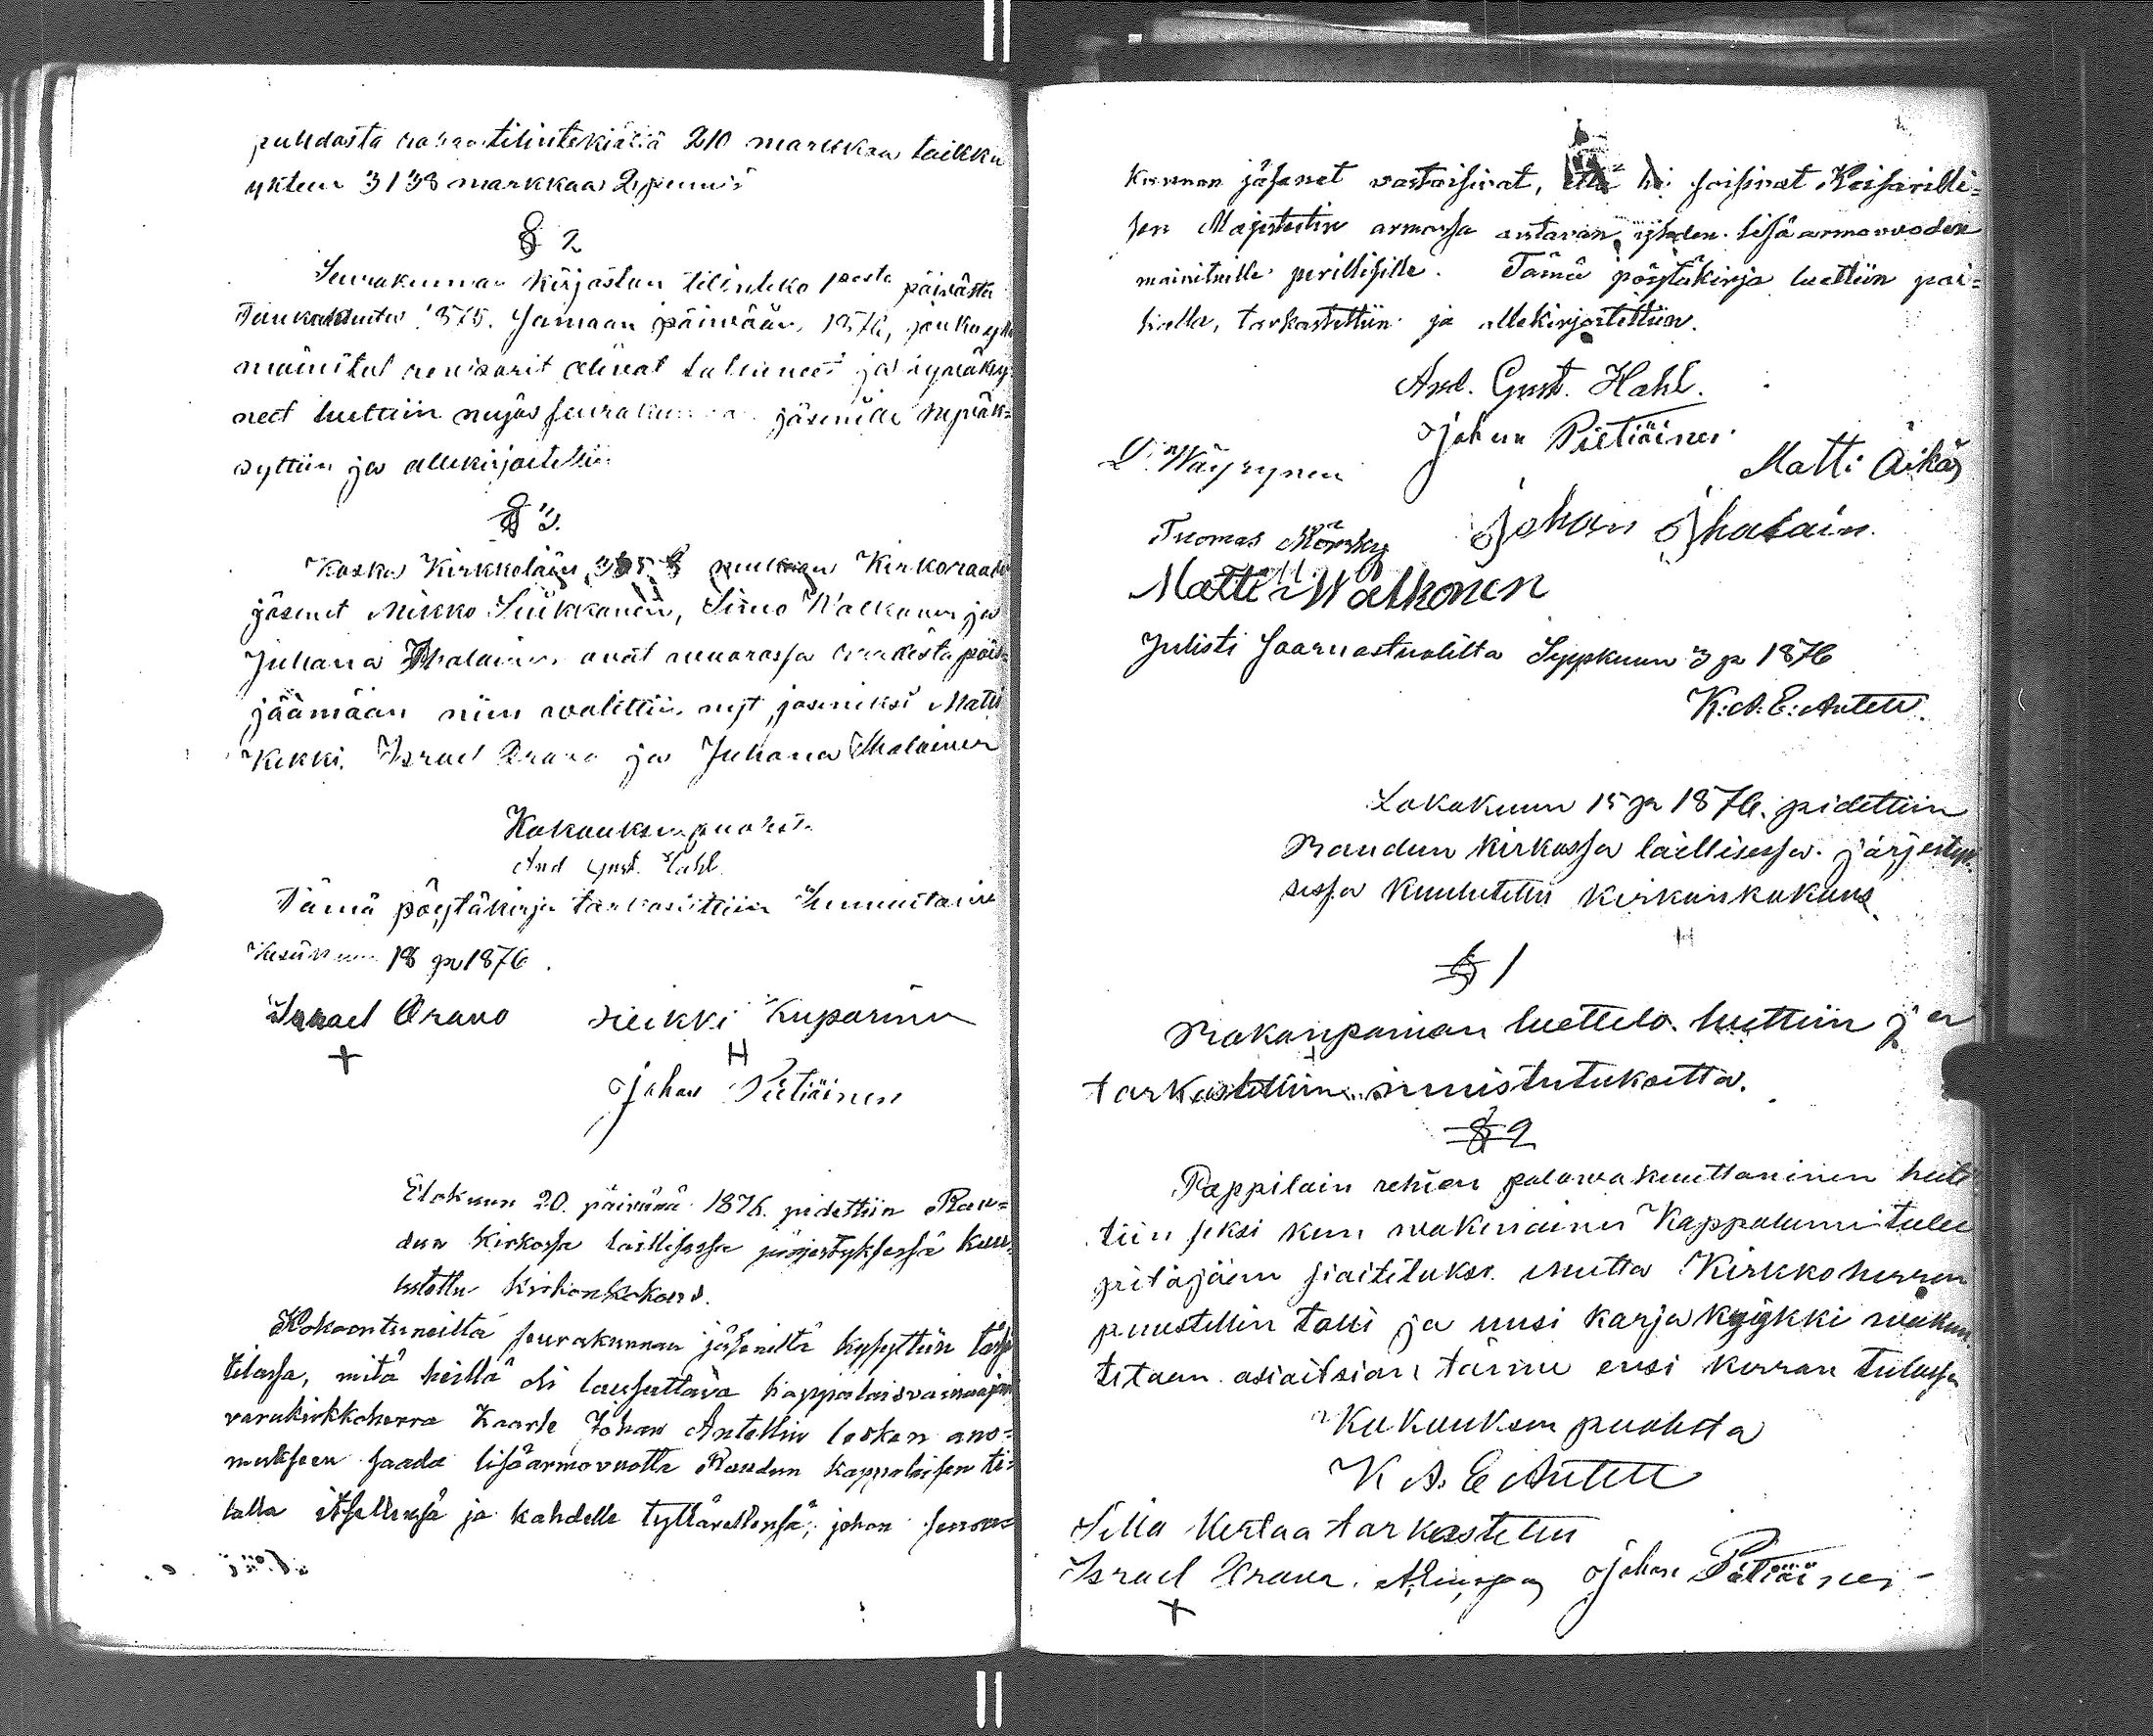 puhdasta rahaa tilintekiältä 210 markkaa taikka
yhteen 3138 markkaa 2 penniä
§ 2
Seurakunnan Kirjaston tilinteko 1 päivästä
Toukokuuta 1875 samaan päivään 1876, jonka yllä
mainitut revisorit olivat tutkineet ja hyväksy-
neet luettiin myös seurakunnan jäsenille hyväk-
syttiin ja allekirjoitettiin
§ 3.
Koska Kirkkolain § mukaan Kirkkoraadin
jäsenet Mikko Siikkanen, Simo Walkonen ja
Juhana Ihalainen ovat vuorossa pois
jäämään niin valittiin nyt jäseniksi Matti
Kekki, Israel Orava ja Juhana Ihalainen
Kokouksen puolesta
And Gust. Hahl
Tämä pöytäkirja tarkastettiin Sunnuntaina
Kesäkuun 18 p 1876.
Israel Oravo Heikki Kuparinen
+ H
Johan Pietiäinen
Elokuun 20. päivänä 1876. pidettiin Rau=
dun kirkossa laillisessa järjestyksessä kuu-
lutettu kirkonkokous.
Kokoontuneilta seurakunnan jäseniltä kysyttiin tässä
tilassa, mitä heillä oli lausuttava kappalaisvainaajan
varakirkkoherra Kaarle Johan Antellin lesken ano=
mukseen saada lisäarmovuotta Raudun kappalaisen ti=
lalla itsellensä ja kahdelle tyttärellensä; johon seura=
kunnan jäsenet vastaisivat, että he soisivat Keisarilli=
sen Majesteetin armossa antavan yhden lisäarmovuoden
mainituille perillisille. Tämä pöytäkirja luettiin pai=
kalla, tarkastettiin ja allekirjoitettiin.
And. Gust. Hahl.
Johan Pietiäinen
D. Wäyrynen Matti Äikäs
Tuomas Mörsky Johan Ihalain.
Matti Walkonen
Julisti Saarnastuolilta Syyskuun 3 p 1876
K: A: E: Antell.
Lokakuun 15 p 1876. pidettiin
Raudun kirkossa laillisessa järjestyk-
sessä kuulutettu kirkonkokous.
H
§ 1
Rokonpanian luettelo luettiin ja
tarkastettiin muistutuksetta.
§ 2
Pappilain rehien palovakuuttaminen heitet
tiin siksi kun vakinainen Kappalainen tulee
pitäjään sijoitetuksi. Mutta Kirkkoherran
puustellin talli ja uusi karjakyykki vakuu-
tetaan asioitsian tänne ensi kerran tulessa
Kokouksen puolesta
K A. E Antell
Sillä kertaa tarkastettu
Israel Orava. Johan Pietiäinen
+